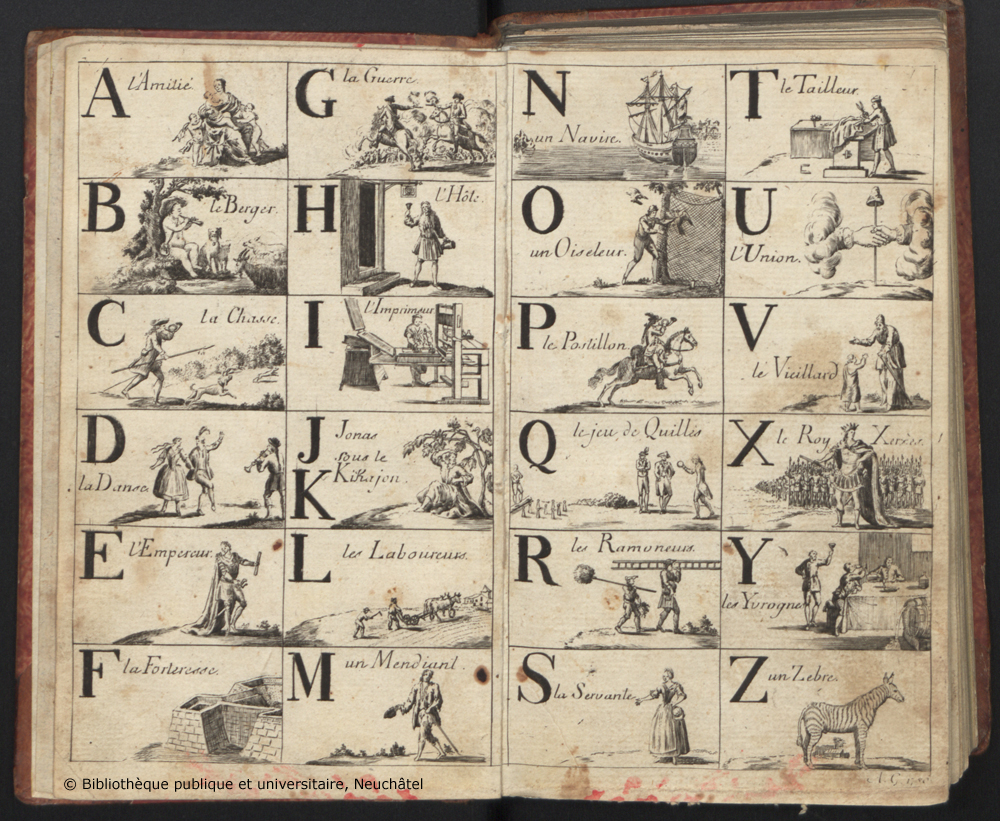 A l'Amitié.
B le Berger.
C la Chasse.
D la Danse
E l'Empereur.
F la Forteresse.
G la Guerre.
H l'Hôte.
I l'Imprimeur
J Jonas
sous le
K Kikajon.
L les Laboureurs.
M un Mendiant.
N un Navire.
O un Oiseleur.
P le Postillon.
Q le jeu de Quilles
R les Ramoneurs.
S la Servante.
T le Tailleur.
U l'Union.
V le Vieillard
X le Roy Xerxes.
Y les Yvrognes
Z un Zebre.
© Bibliothèque publique et universitaire, Neuchâtel